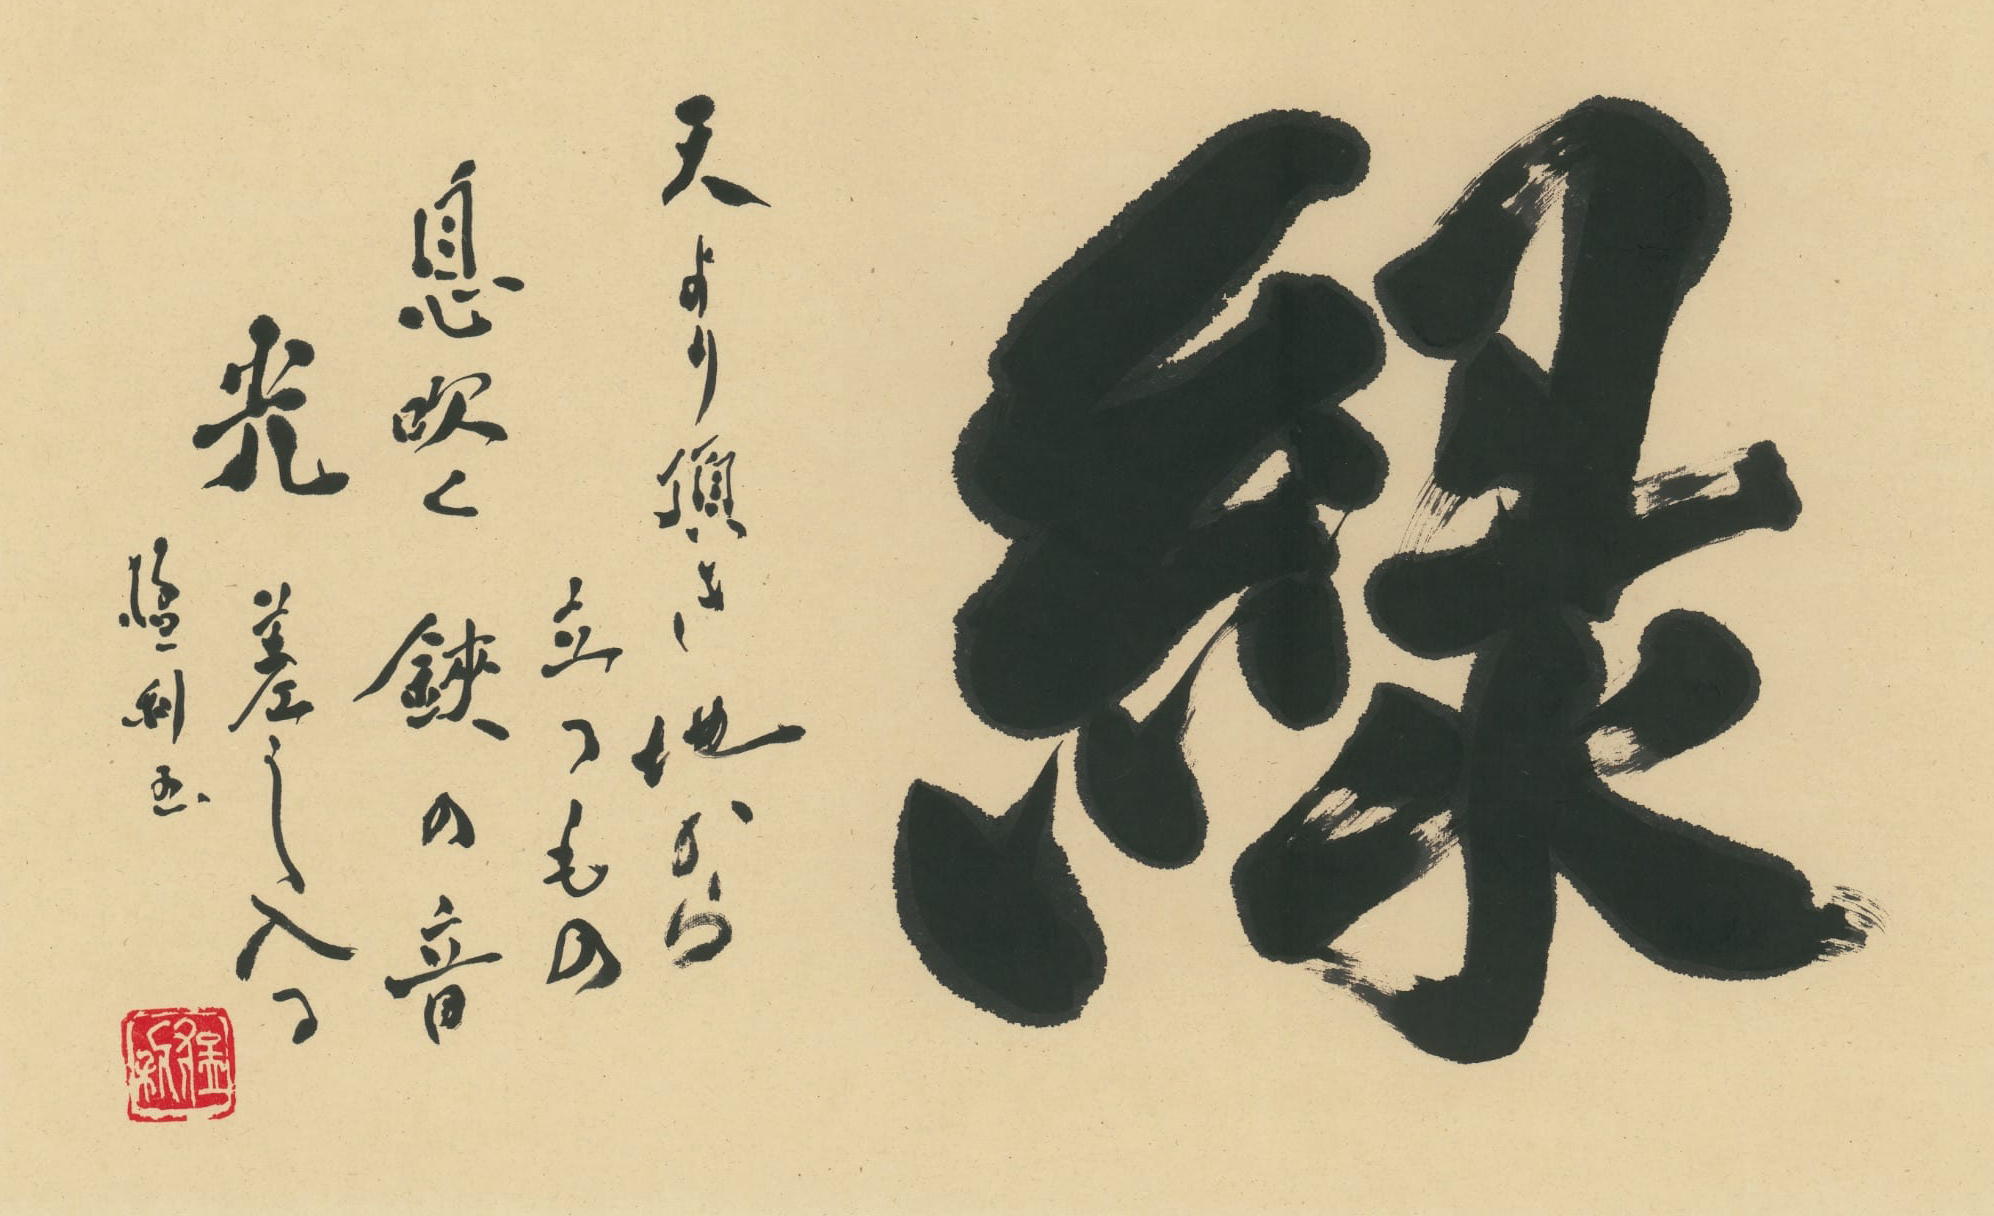 緑
天より頂き 地から
立つもの
息吹く 鋏の音
光 差し入る
猛利 書